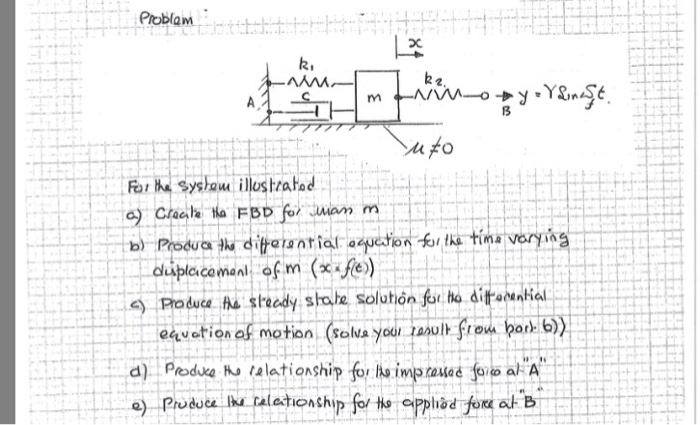 Problem
x
k₁
k₂
A
c
m
y = Y Sin Ωt.
B
μ≠0
For the system illustrated
a) Create the FBD for mass m
b) Produce the differential equation for the time varying
displacement of m (x=f(t))
c) Produce the steady state solution for the differential
equation of motion (solve your result from part b))
d) Produce the relationship for the impressed force at "A"
e) Produce the relationship for the applied force at "B"